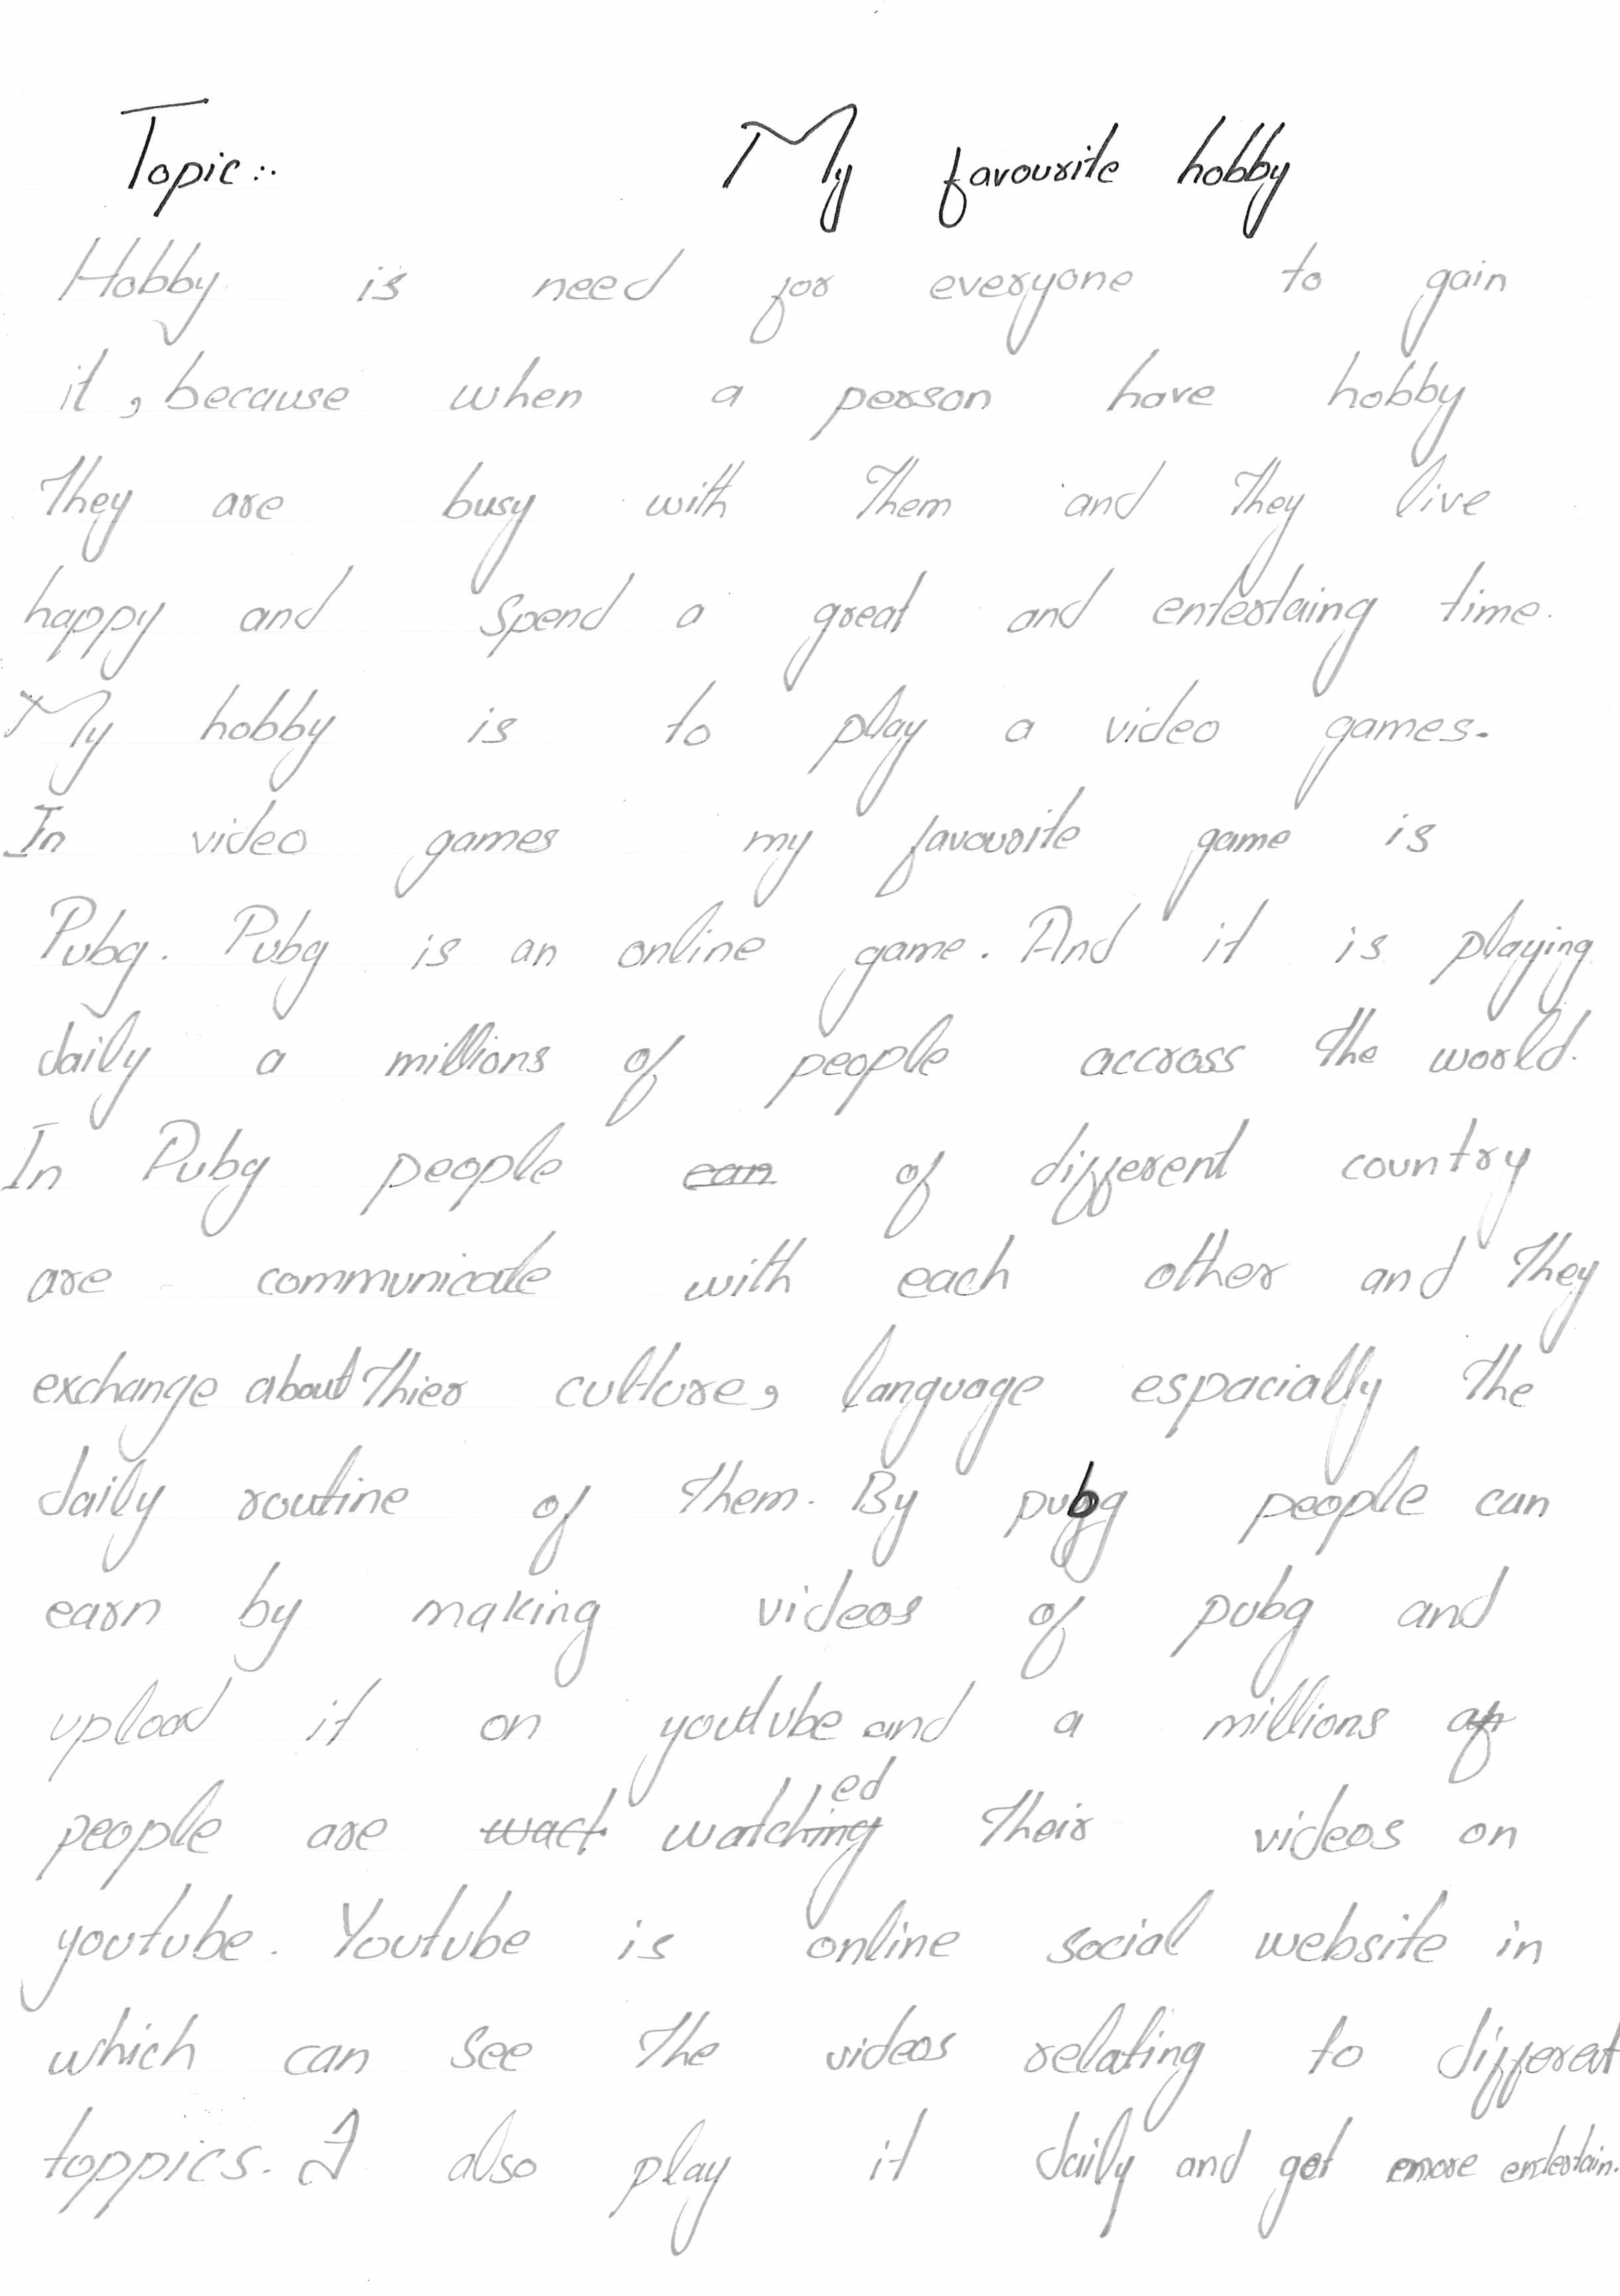 Topic:: My favourite hobby
Hobby is need for everyone to gain
it, because when a person have hobby
They are busy with Them and They live
happy and Spend a great and entertaing time.
My hobby is to play a video games.
In video games my favourite game is
Pubg. Pubg is an online game. And it is playing
daily a millions of people accross the world.
In Pubg people ean of different country
are communicate with each other and They
exchange about Thier culture, language espacially The
daily routine of Them. By pubg people can
earn by making videos of pubg and
upload it on youtube and a millions of
people are wact watchinged Their videos on
youtube. Youtube is online social website in
which can See The videos relating to differet
toppics. I also play it daily and get more entertain.